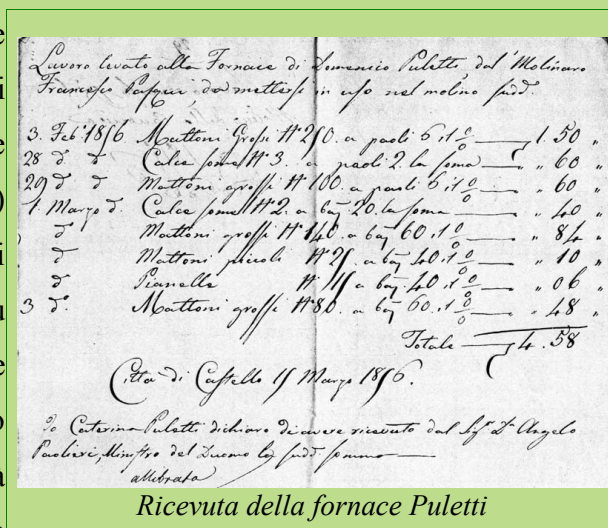 Lavoro levato alla Fornace di Domenico Puletti, dal Molinaro
Francesco Pasqui da mettersi in uso nel molino sudd.
3. Feb° 1856 Mattoni Grossi N° 250. a paoli 6 il % 1. 50 "
28 d° d° Calce some N° 3. a paoli 2. la soma " 60 "
29 d° d° Mattoni grossi N° 100. a paoli 6 il % " 60 "
1. Marzo d° Calce some N° 2. a baj 20. la soma " 40 "
d° Mattoni grossi N° 140. a baj 60 il % " 84 "
d° Mattoni piccoli N° 25. a baj 40 il % " 10 "
d° Pianelle N° 15 a baj 40 il % " 06 "
3 d° Mattoni grossi N° 80. a baj 60. il % " 48 "
Totale 4. 58
Città di Castello 15 Marzo 1856.
Io Caterina Puletti dichiaro di avere ricevuto dal Sigr Dn Angelo
Paolieri, Ministro del Duomo la sudd. somma
Ricevuta della fornace Puletti